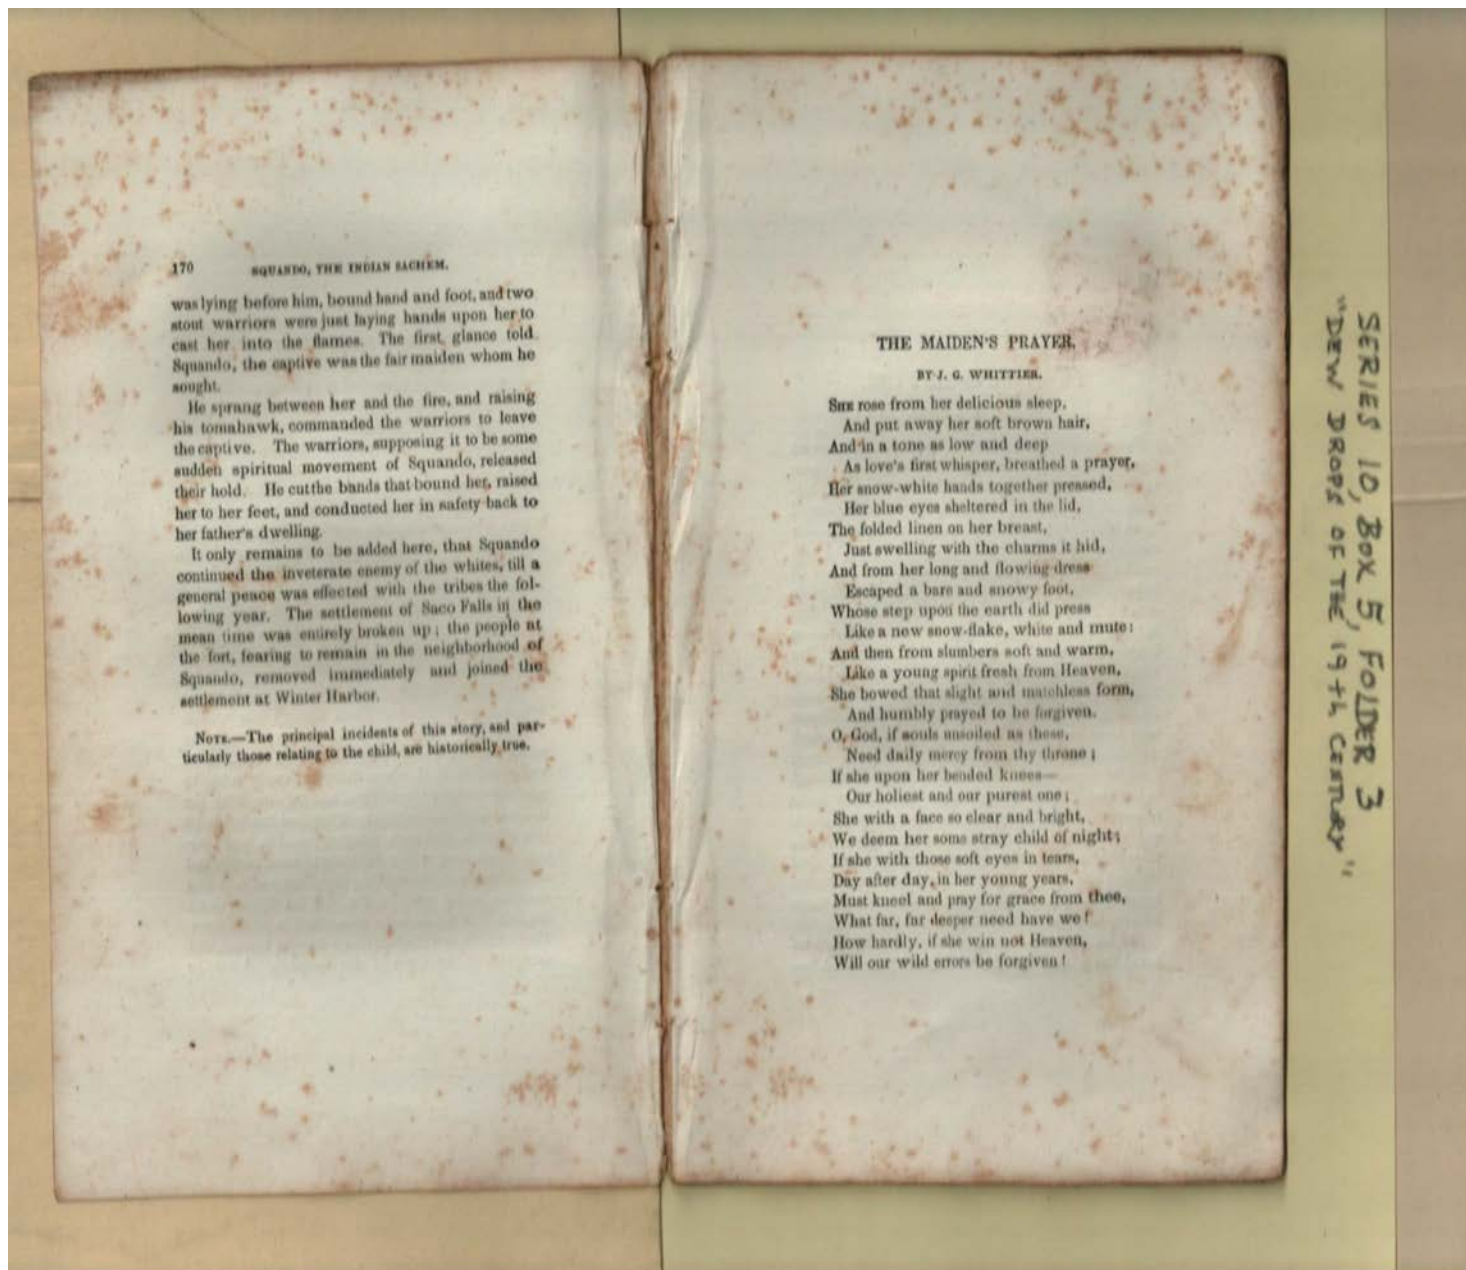 170 SQUANDO, THE INDIAN SACHEM.
was lying before him, bound hand and foot, and two
stout warriors were just laying hands upon her to
cast her into the flames. The first glance told
Squando, the captive was the fair maiden whom he
sought.
He sprang between her and the fire, and raising
his tomahawk, commanded the warriors to leave
the captive. The warriors, supposing it to be some
sudden spiritual movement of Squando, released
their hold. He cut the bands that bound her, raised
her to her feet, and conducted her in safety back to
her father's dwelling.
It only remains to be added here, that Squando
continued the inveterate enemy of the whites, till a
general peace was effected with the tribes the fol-
lowing year. The settlement of Saco Falls in the
mean time was entirely broken up; the people at
the fort, fearing to remain in the neighborhood of
Squando, removed immediately and joined the
settlement at Winter Harbor.
NOTE.—The principal incidents of this story, and par-
ticularly those relating to the child, are historically true.
THE MAIDEN'S PRAYER.
BY J. G. WHITTIER.
SHE rose from her delicious sleep,
And put away her soft brown hair,
And in a tone as low and deep
As love's first whisper, breathed a prayer,
Her snow-white hands together pressed,
Her blue eyes sheltered in the lid,
The folded linen on her breast,
Just swelling with the charms it hid,
And from her long and flowing dress
Escaped a bare and snowy foot,
Whose step upon the earth did press
Like a new snow-flake, white and mute;
And then from slumbers soft and warm,
Like a young spirit fresh from Heaven,
She bowed that slight and matchless form,
And humbly prayed to be forgiven.
O, God, if souls unsoiled as these,
Need daily mercy from thy throne;
If she upon her bended knees—
Our holiest and our purest one;
She with a face so clear and bright,
We deem her some stray child of night;
If she with those soft eyes in tears,
Day after day, in her young years,
Must kneel and pray for grace from thee,
What far, far deeper need have we!
How hardly, if she win not Heaven,
Will our wild errors be forgiven!
SERIES 10, BOX 5, FOLDER 3
"DEW DROPS OF THE 19th CENTURY"